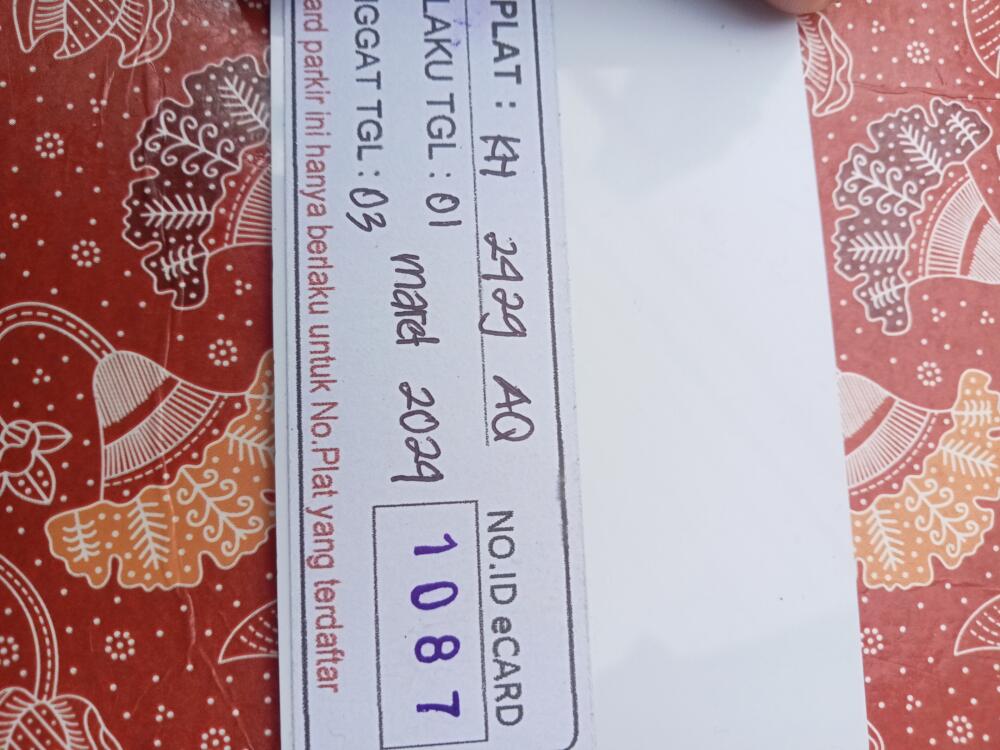 PLAT : KH 2429 AQ
NO.ID eCARD
LAKU TGL : 01
maret 2024
1087
GGAT TGL : 03
ard parkir ini hanya berlaku untuk No.Plat yang terdaftar